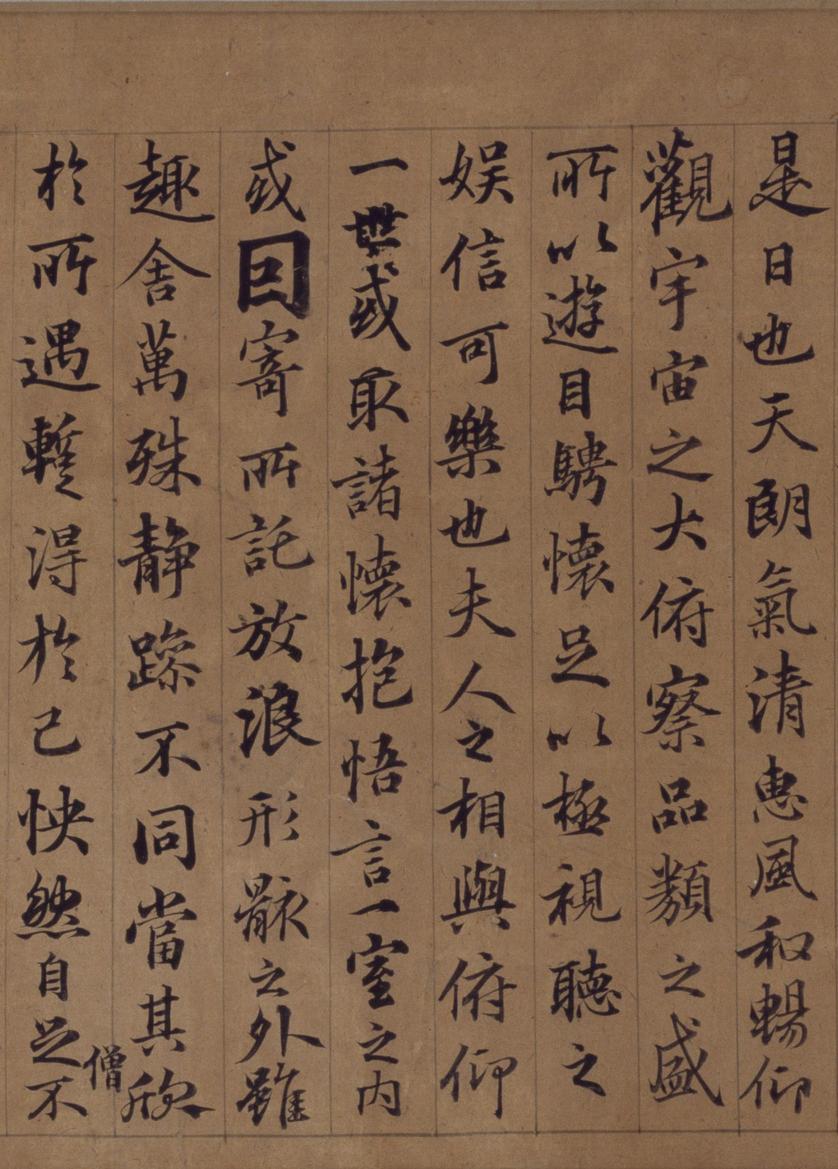 是日也天朗氣清惠風和暢仰
觀宇宙之大俯察品類之盛
所以遊目騁懷足以極視聽之
娛信可樂也夫人之相與俯仰
一世或取諸懷抱悟言一室之內
或因寄所託放浪形骸之外雖
趣舍萬殊靜躁不同當其欣
僧
於所遇暫得於己怏然自足不